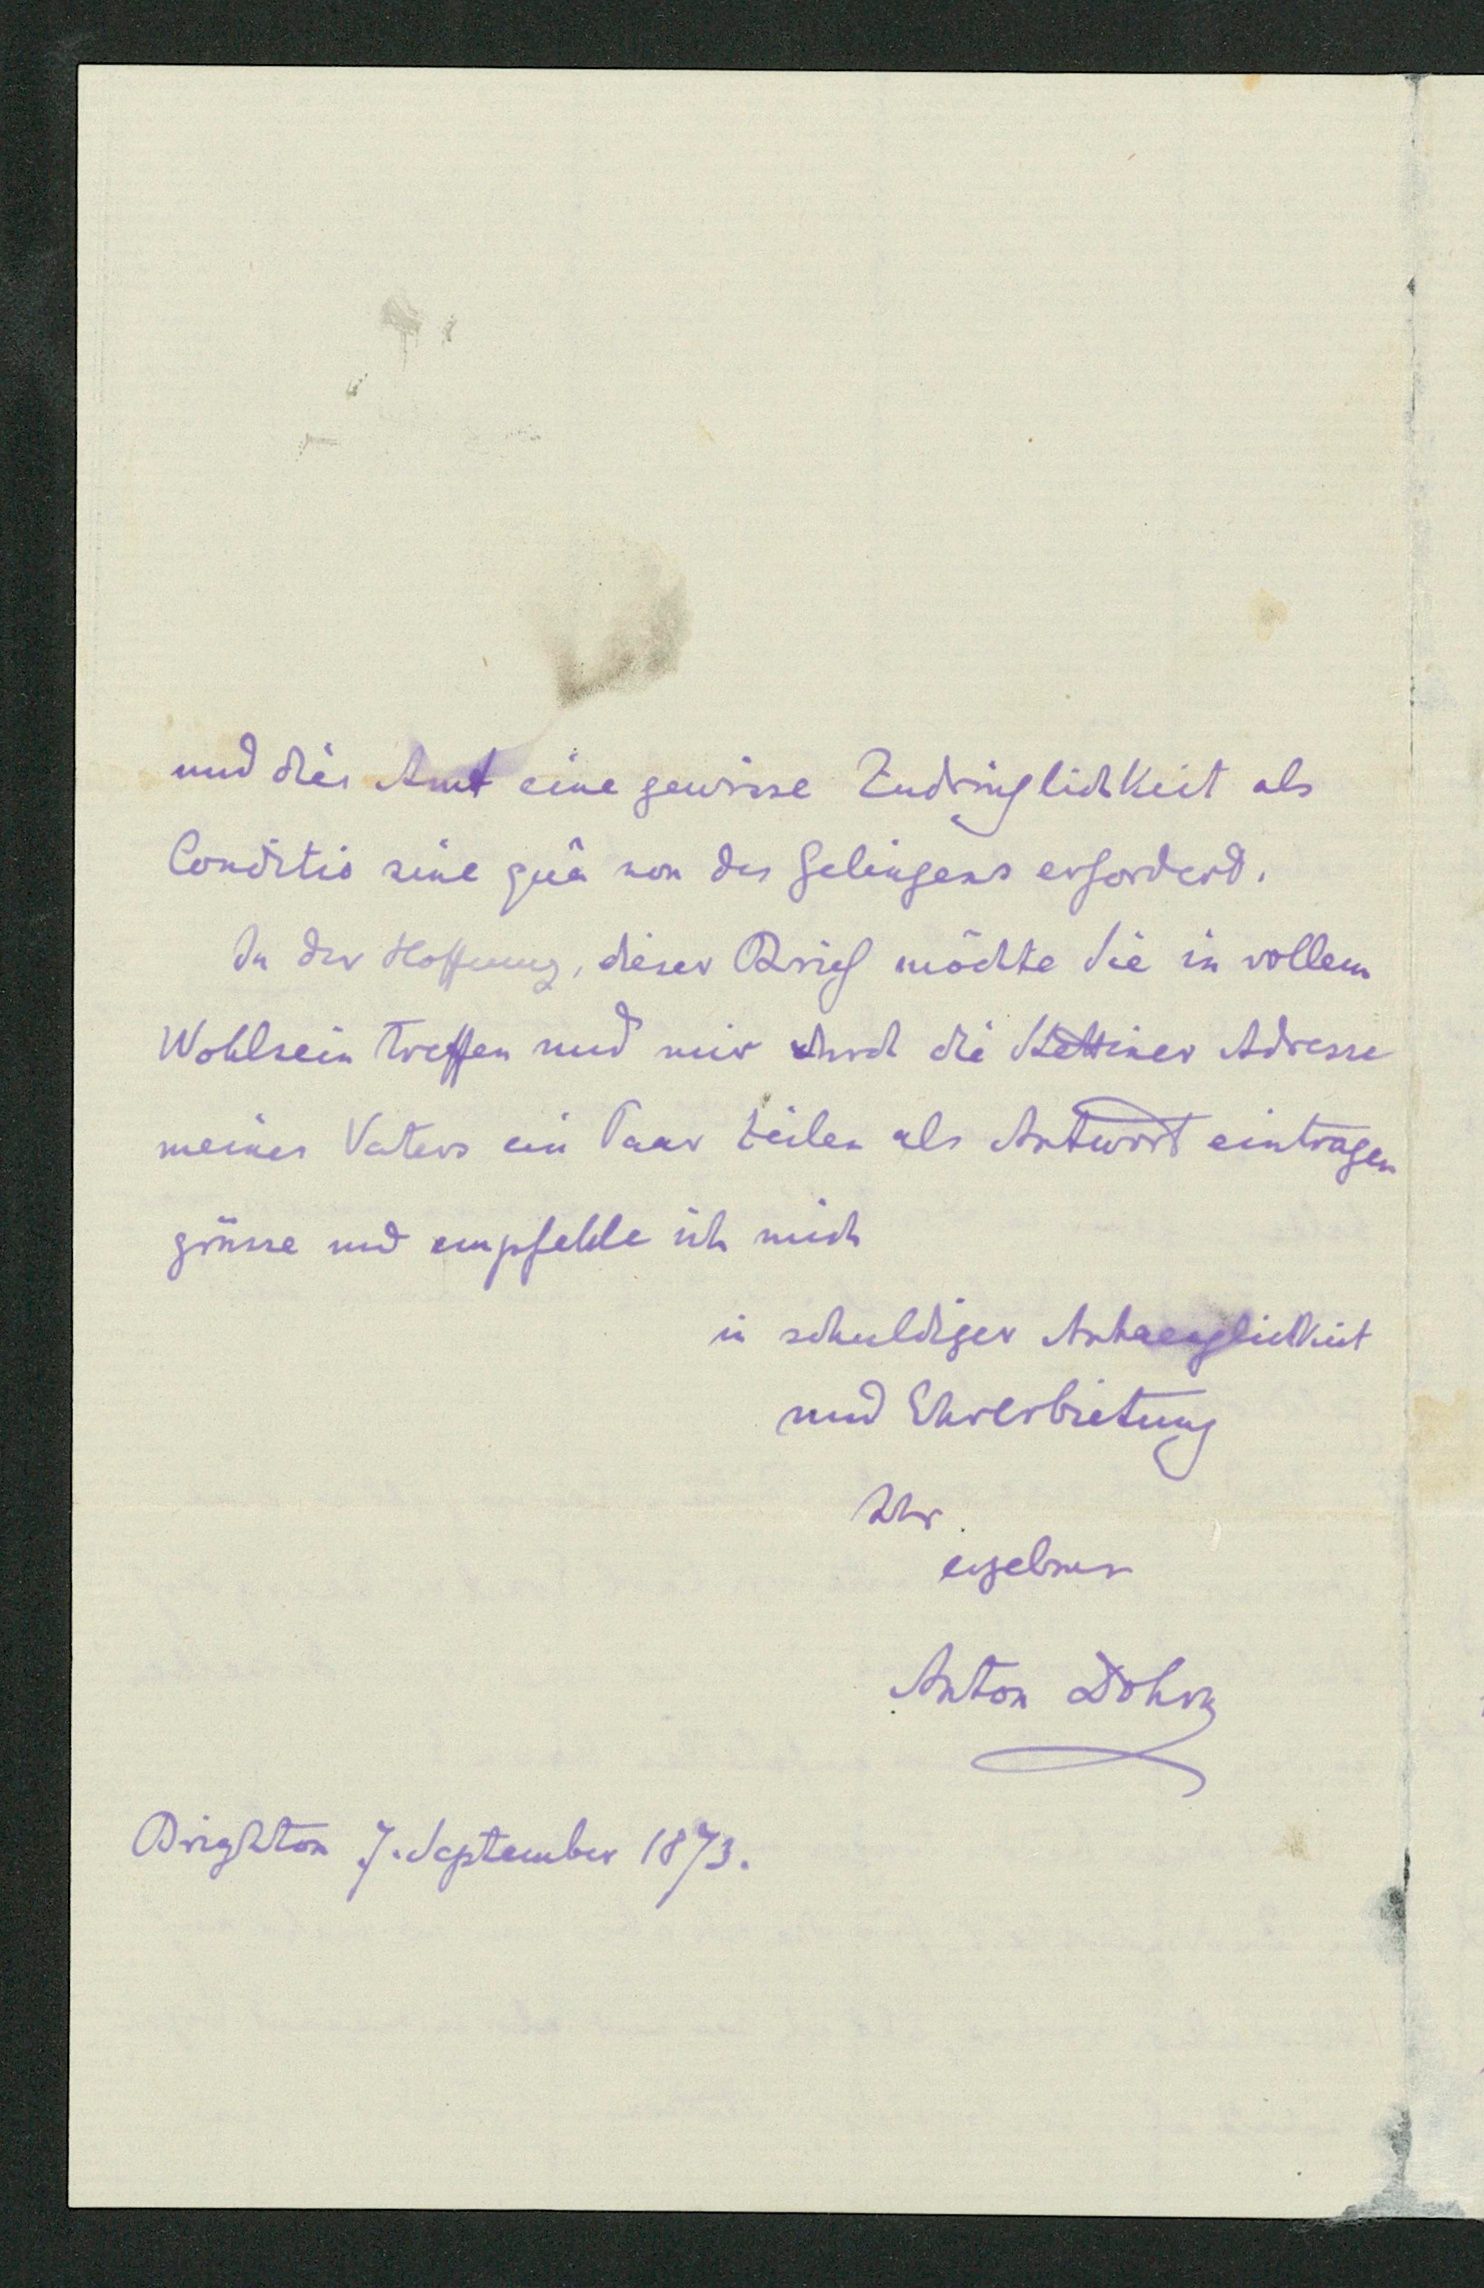 und dies Amt eine gewisse Zudringlichkeit als
Conditio sine quâ non des Gelingens erfordert.
In der Hoffnung, dieser Brief möchte Sie in vollem
Wohlsein treffen und mir durch die Stettiner Adresse
meines Vaters ein Paar Zeilen als Antwort eintragen
grüsse und empfehle ich mich
in schuldiger Anhaenglichkeit
und Ehrerbietung
Ihr
ergebner
Anton Dohrn
Brighton 7. September 1873.